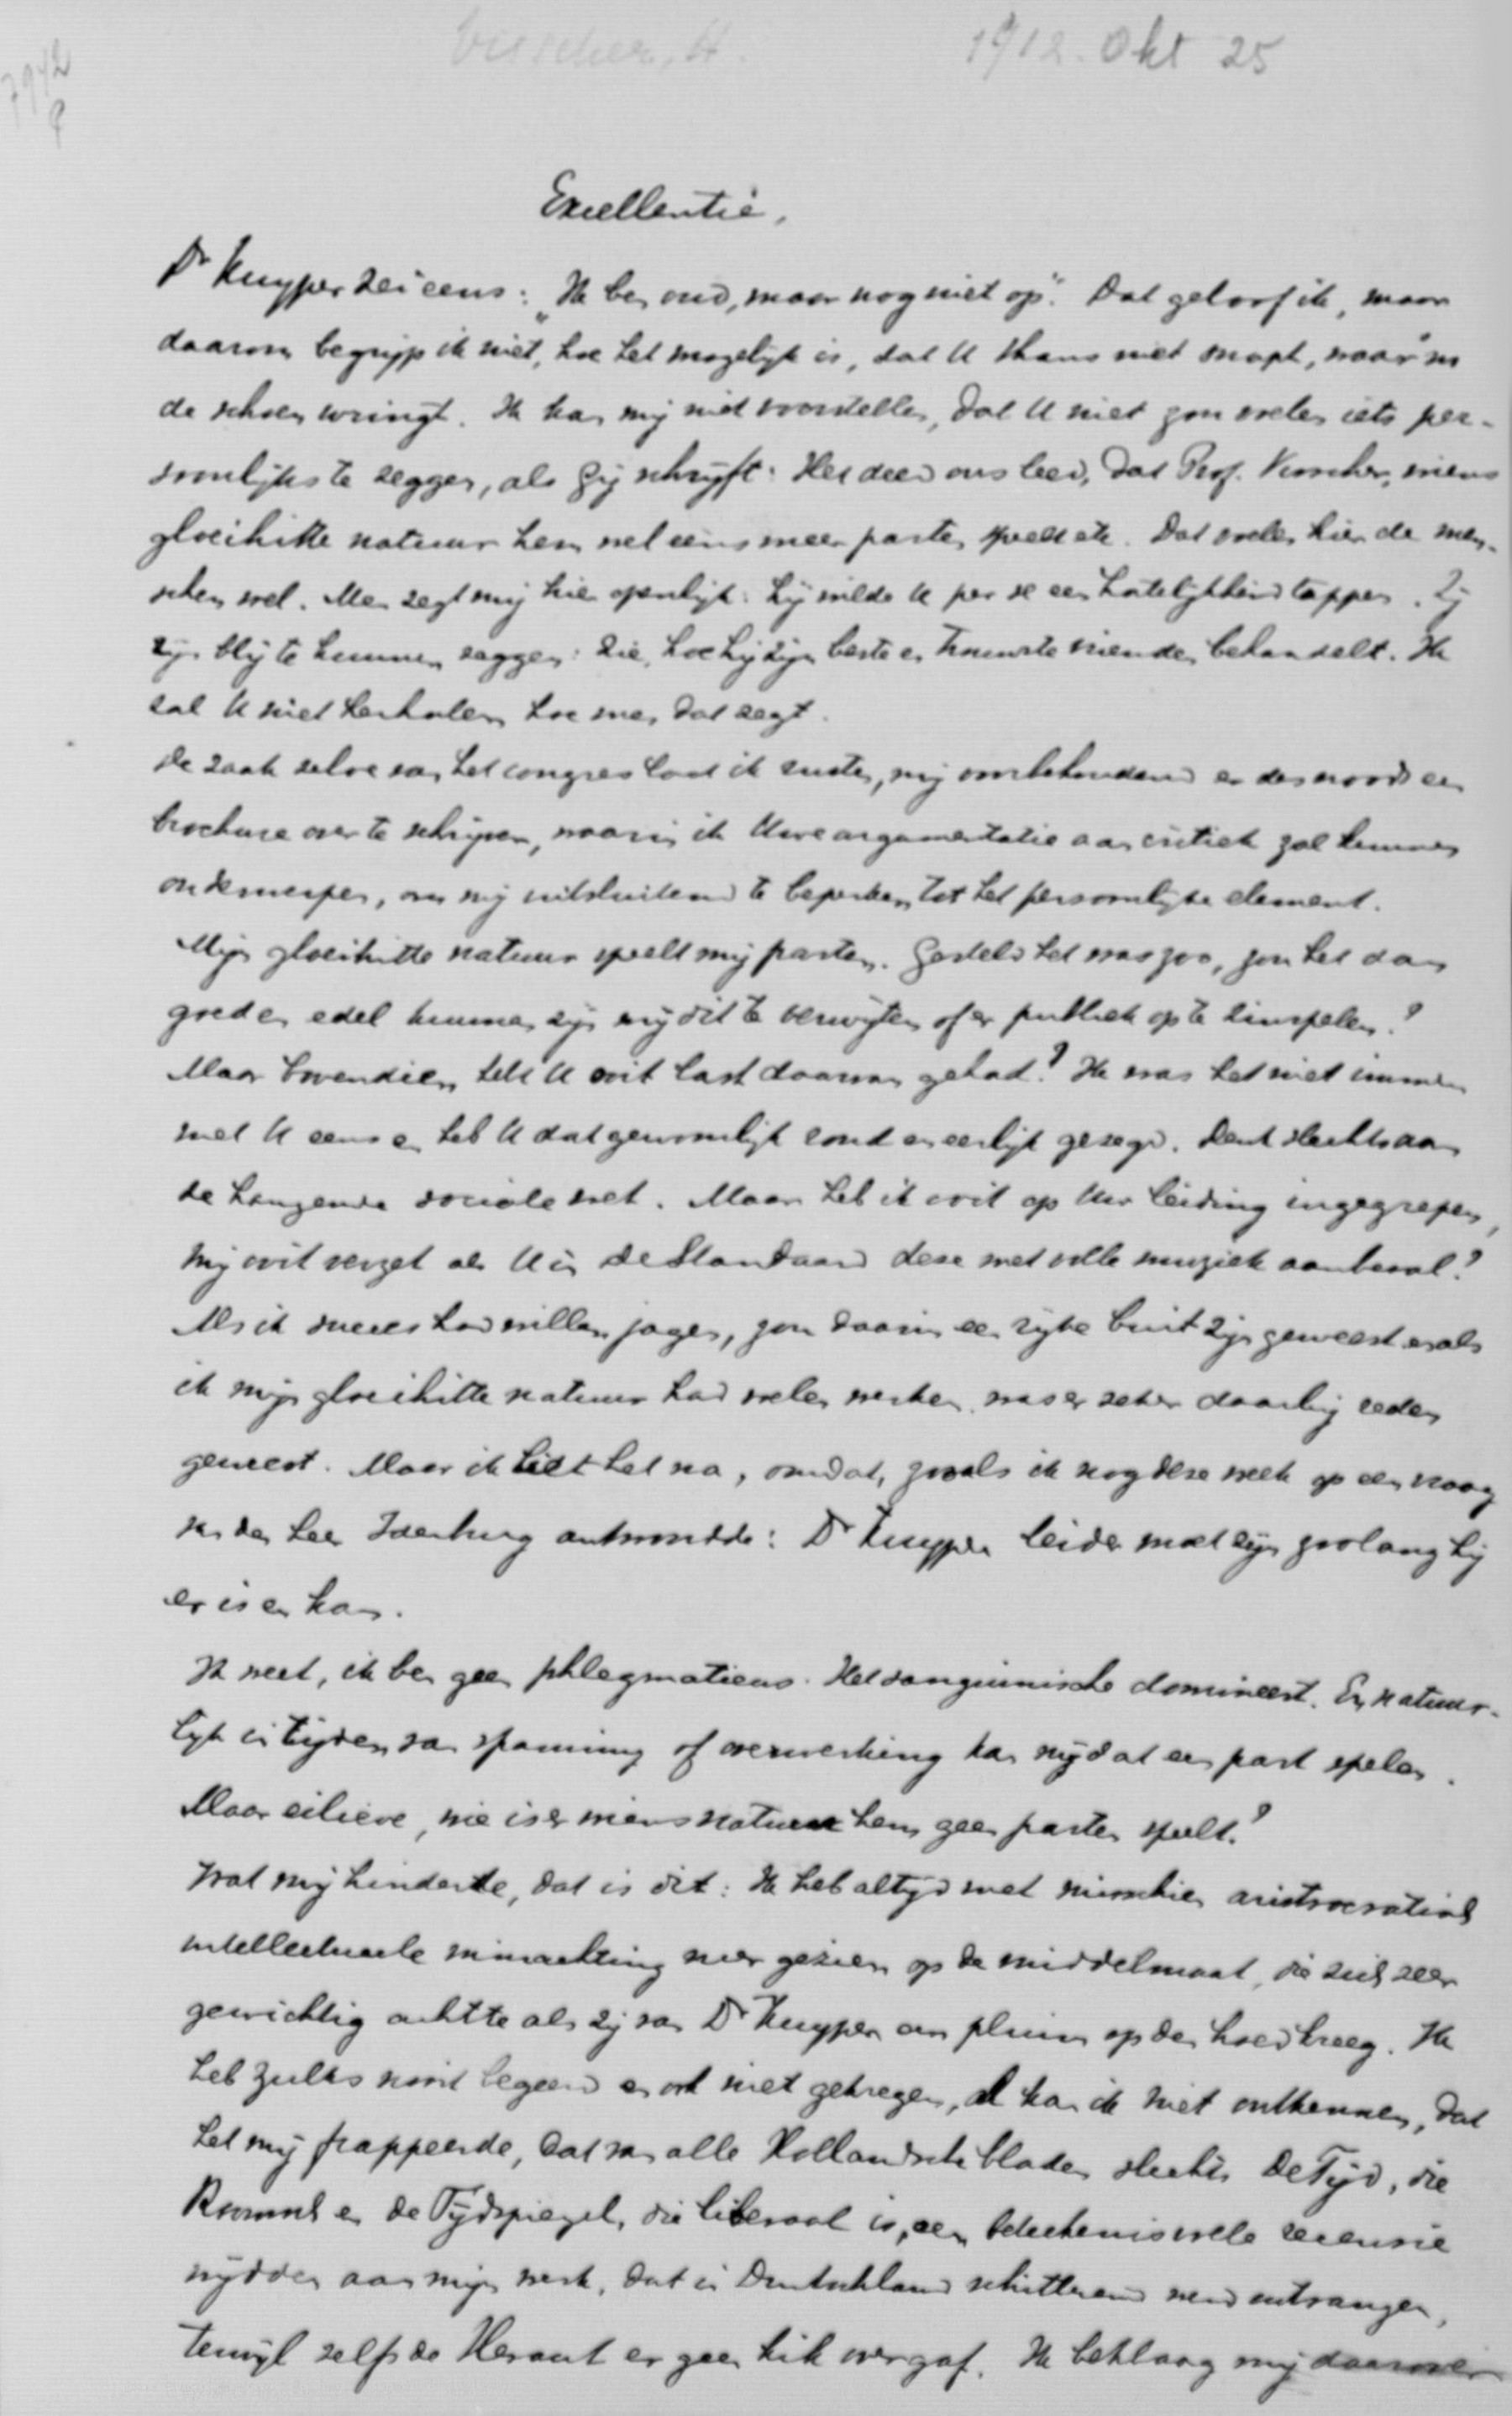 Visscher, H. 1912. Okt 25
7942
Excellentie,
Dr Kuyper zei eens: "Ik ben oud, maar nog niet op". Dat geloof ik, maar
daarom begrijp ik niet, hoe het mogelijk is, dat U thans niet snapt, waar 'm
de schoen wringt. Ik kan mij niet voorstellen, dat U niet zou voelen iets per-
soonlijks te zeggen, als Gij schrijft: Het deed ons leed, dat Prof. Visscher, wiens
gloeihitte natuur hem wel eens meer parten speelt etc. Dat voelen hier de men-
schen wel. Men zegt mij hier openlijk: hij wilde U per se een hatelijkheid tappen. Zij
zijn blij te kunnen zeggen: Zie, hoe hij zijn beste en trouwste vrienden behandelt. Ik
zal U niet herhalen hoe men dat zegt.
De zaak zelve van het congres laat ik rusten, mij voorbehoudend er desnoods een
brochure over te schrijven, waarin ik Uwe argumentatie aan critiek zal kunnen
onderwerpen, om mij uitsluitend te beperken tot het persoonlijke element.
Mijn gloeihitte natuur speelt mij parten. Gesteld het was zoo, zou het dan
goed en edel kunnen zijn mij dit te verwijten of er publiek op te zinspelen?
Maar bovendien hebt U ooit last daarvan gehad? Ik was het niet immer
met U eens en heb U dat gewoonlijk rond en eerlijk gezegd. Denk slechts aan
de hangende sociale wet. Maar heb ik ooit op Uw leiding ingegrepen,
mij ooit verzet als U in De Standaard deze met volle muziek aanbeval?
Als ik succes had willen jagen, zou daarin een rijke buit zijn geweest en als
ik mijn gloeihitte natuur had voelen werken was er zeker daarbij reden
geweest. Maar ik liet het na, omdat, zooals ik nog deze week op een vraag
van den heer Idenburg antwoordde: Dr Kuyper leider moet zijn zoolang hij
er is en kan.
Ik weet, ik ben geen phlegmaticus. Het sanguinische domineert. En natuur-
lijk in tijden van spanning of overwerking kan mij dat een part spelen.
Maar eilieve, wie is er wiens natuur hem geen parten speelt?
Wat mij hinderde, dat is dit: Ik heb altijd met misschien aristocratische
intellectueele minachting neer gezien op de middelmaat, die zich zeer
gewichtig achtte als zij van Dr Kuyper een pluim op den hoed kreeg. Ik
heb zulks nooit begeerd en ook niet gekregen, al kan ik niet ontkennen, dat
het mij frappeerde, dat van alle Hollandsche bladen slechts De Tijd, die
Roomsch en de Tijdspiegel, die liberaal is, een beteekenisvolle recensie
wijdden aan mijn werk, dat in Duitschland schitterend werd ontvangen,
terwijl zelfs de Heraut er geen kik over gaf. Ik beklaag mij daarover